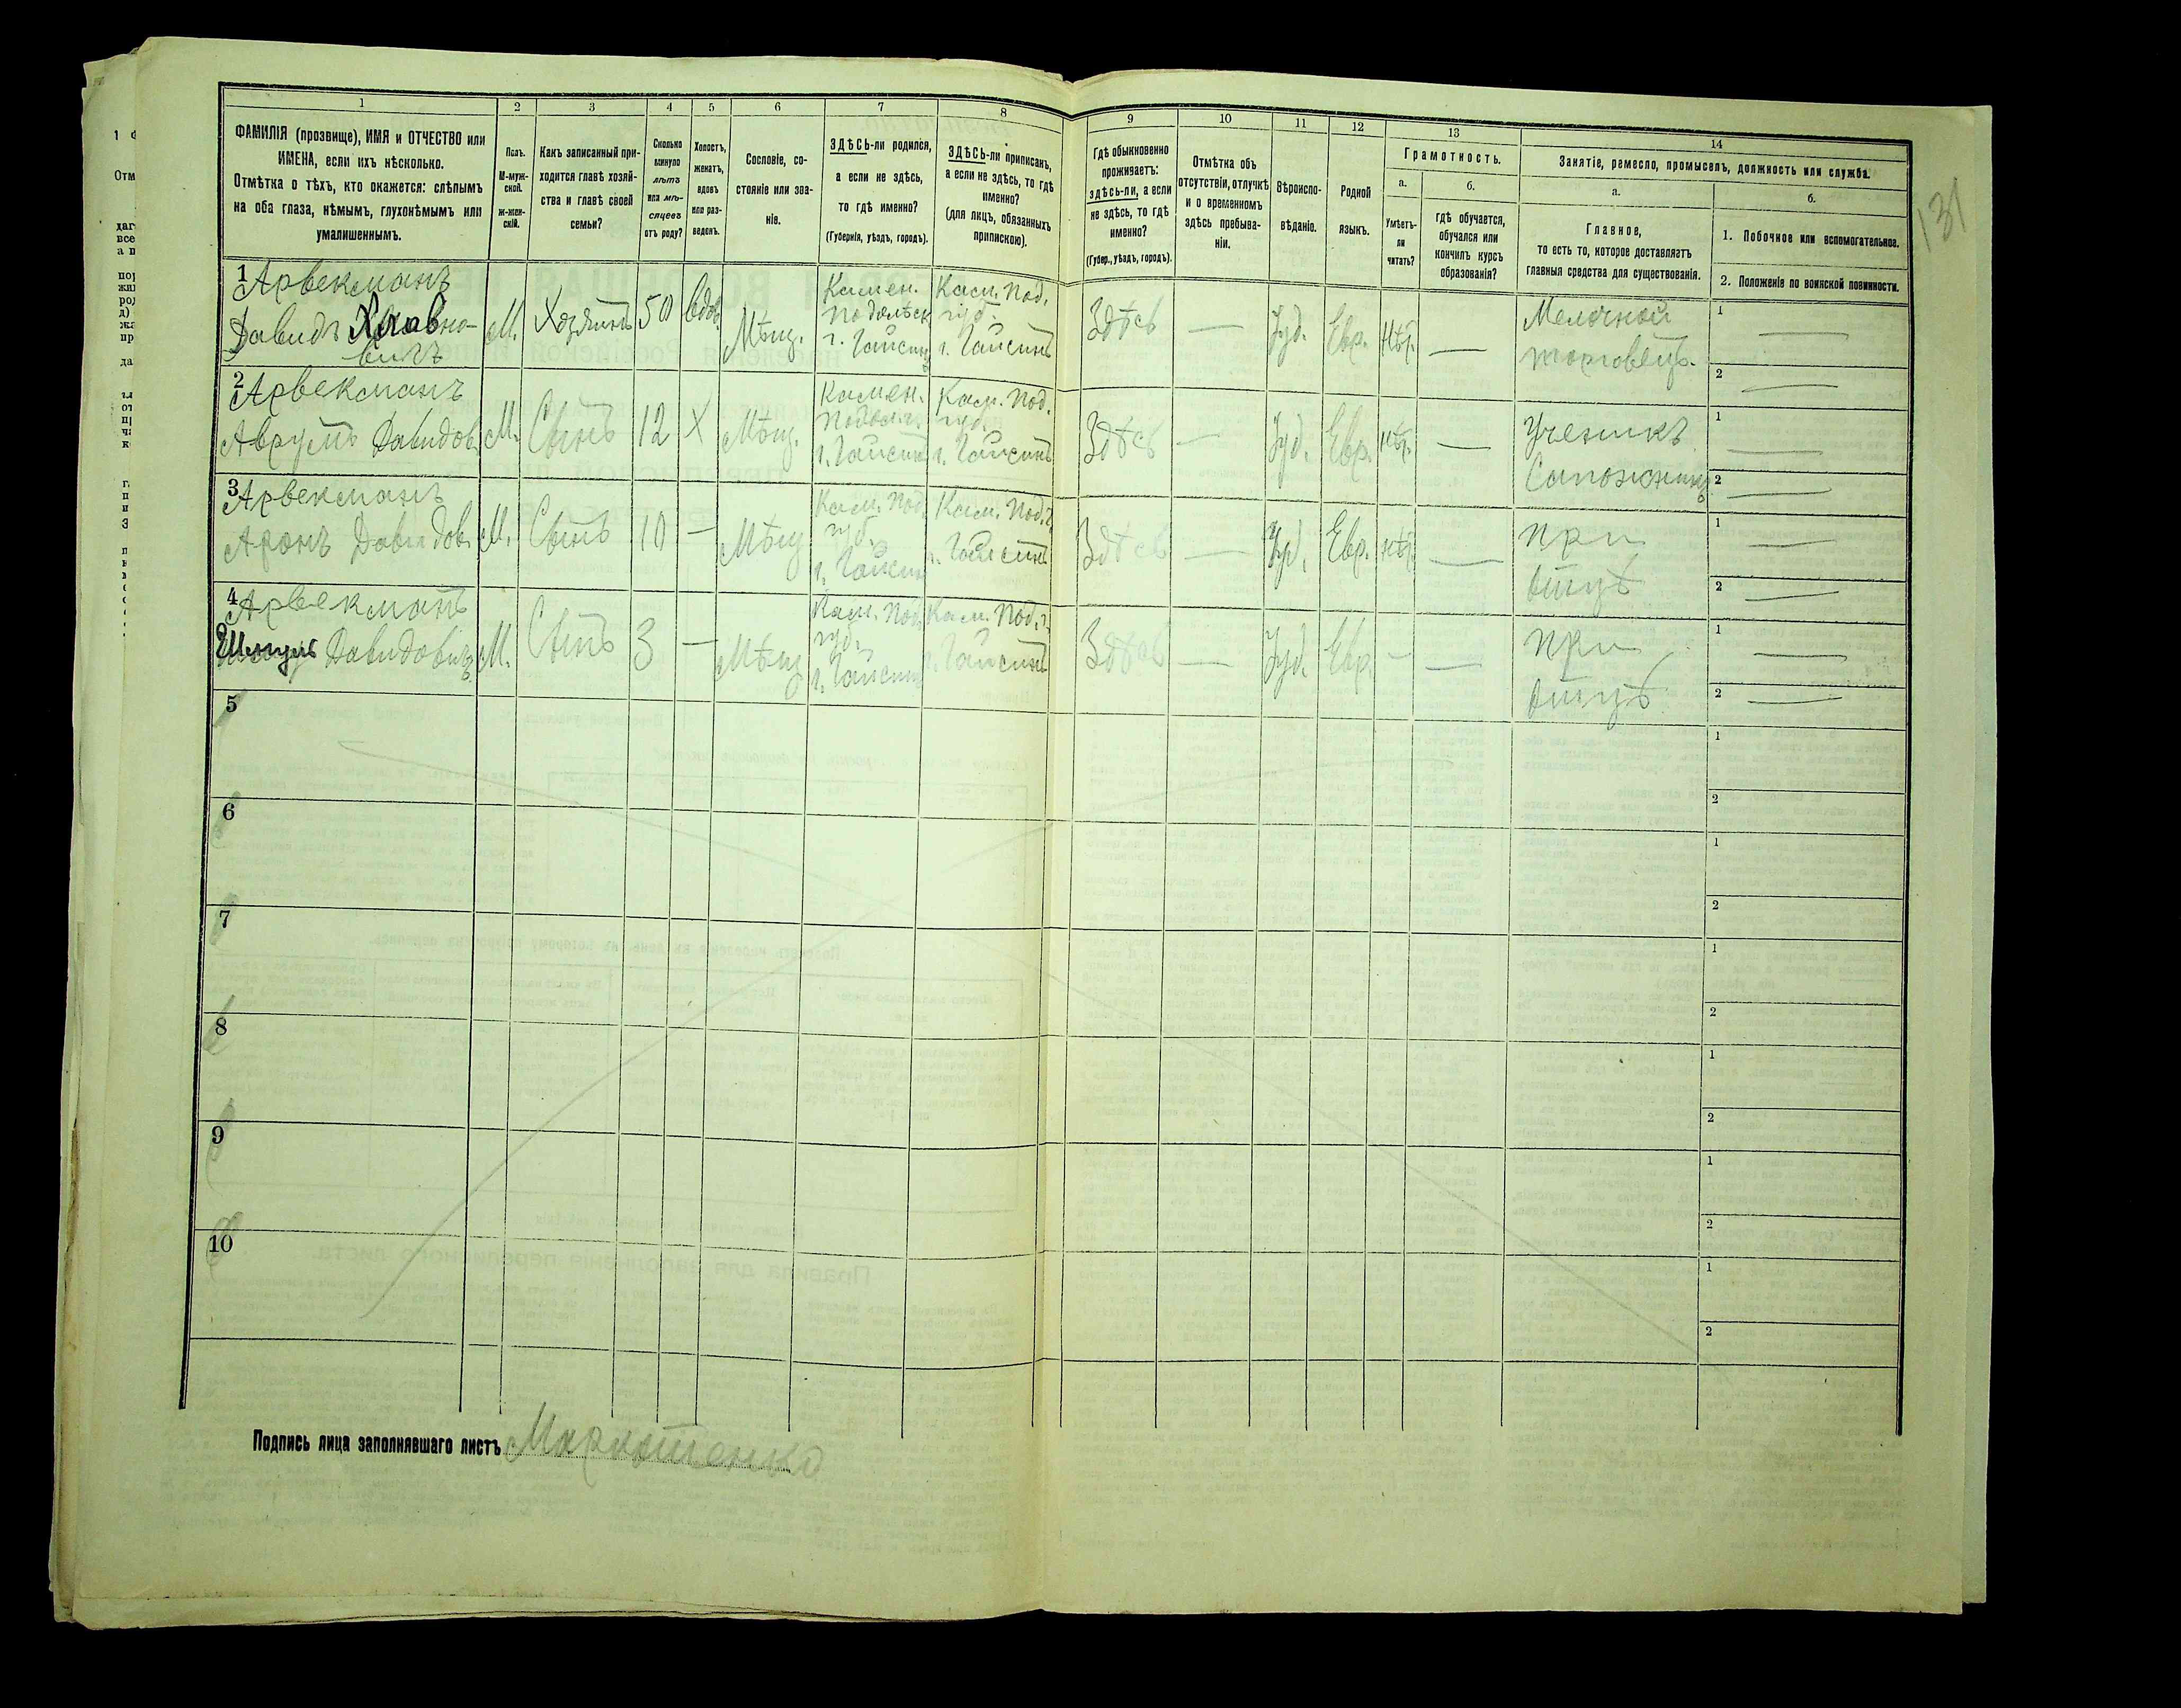 131
1
2
3
4
5
6
7
8
9
10
11
12
13
14
ФАМИЛІЯ (прозвище), ИМЯ и ОТЧЕСТВО или
ИМЕНА, если ихъ нѣсколько.
Отмѣтка о тѣхъ, кто окажется: слѣпымъ
на оба глаза, нѣмымъ, глухонѣмымъ или
умалишеннымъ.
Полъ.
М-муж-
ской.
ж-жен-
скій.
Какъ записанный при-
ходится главѣ хозяй-
ства и главѣ своей
семьи?
Сколько
минуло
лѣтъ
или мѣ-
сяцевъ
отъ роду?
Холостъ,
женатъ,
вдовъ
или раз-
веденъ.
Сословіе, со-
стояніе или зва-
ніе.
ЗДѢСЬ-ли родился,
а если не здѣсь,
то гдѣ именно?
(Губернія, уѣздъ, городъ).
ЗДѢСЬ-ли приписанъ,
а если не здѣсь, то гдѣ
именно?
(для лицъ, обязанныхъ
припискою).
Гдѣ обыкновенно
проживаетъ:
здѣсь-ли, а если
не здѣсь, то гдѣ
именно?
(Губер., уѣздъ, городъ).
Отмѣтка объ
отсутствіи, отлучкѣ
и о временномъ
здѣсь пребыва-
ніи.
Вѣроиспо-
вѣданіе.
Родной
языкъ.
Грамотность.
а.
Умѣетъ-
ли
читать?
б.
гдѣ обучается,
обучался или
кончилъ курсъ
образованія?
Занятіе, ремесло, промыселъ, должность или служба.
а.
Главное,
то есть то, которое доставляетъ
главныя средства для существованія.
б.
1. Побочное или вспомогательное.
2. Положеніе по воинской повинности.
1
Арвекманъ
Давидъ
вичъ
М.
Хозяинъ
50
вдов.
Мѣщ.
Камен.
Подольск
г. Гайсинъ
Кам. Под.
губ.
г. Гайсинъ
Здѣсь
—
Іуд.
Евр.
нѣт.
—
Мелочной
торговецъ.
1 —
2 —
2
Арвекманъ
Аврумъ Давидов.
М.
Сынъ
12
Х
Мѣщ.
Камен.
Подольск.
г. Гайсинъ
Кам. Под.
губ.
г. Гайсинъ
Здѣсь
—
Іуд.
Евр.
нѣт.
—
Ученикъ
Сапожника
1 —
2 —
3
Арвекманъ
Аронъ Давидов.
М.
Сынъ
10
—
Мѣщ
Кам. Под.
губ.
г. Гайсинъ
Кам. Под. г.
г. Гайсинъ
Здѣсь
—
Іуд.
Евр.
нѣт.
—
при
отцѣ
1 —
2 —
4
Арвекманъ
Шмуль Давидовичъ
М.
Сынъ
3
—
Мѣщ
Кам. Под.
губ.
г. Гайсинъ
Кам. Под. г.
г. Гайсинъ
Здѣсь
—
Іуд.
Евр.
—
—
при
отцѣ
1 —
2 —
5
1
2
6
1
2
7
1
2
8
1
2
9
1
2
10
1
2
Подпись лица заполнявшаго листъ